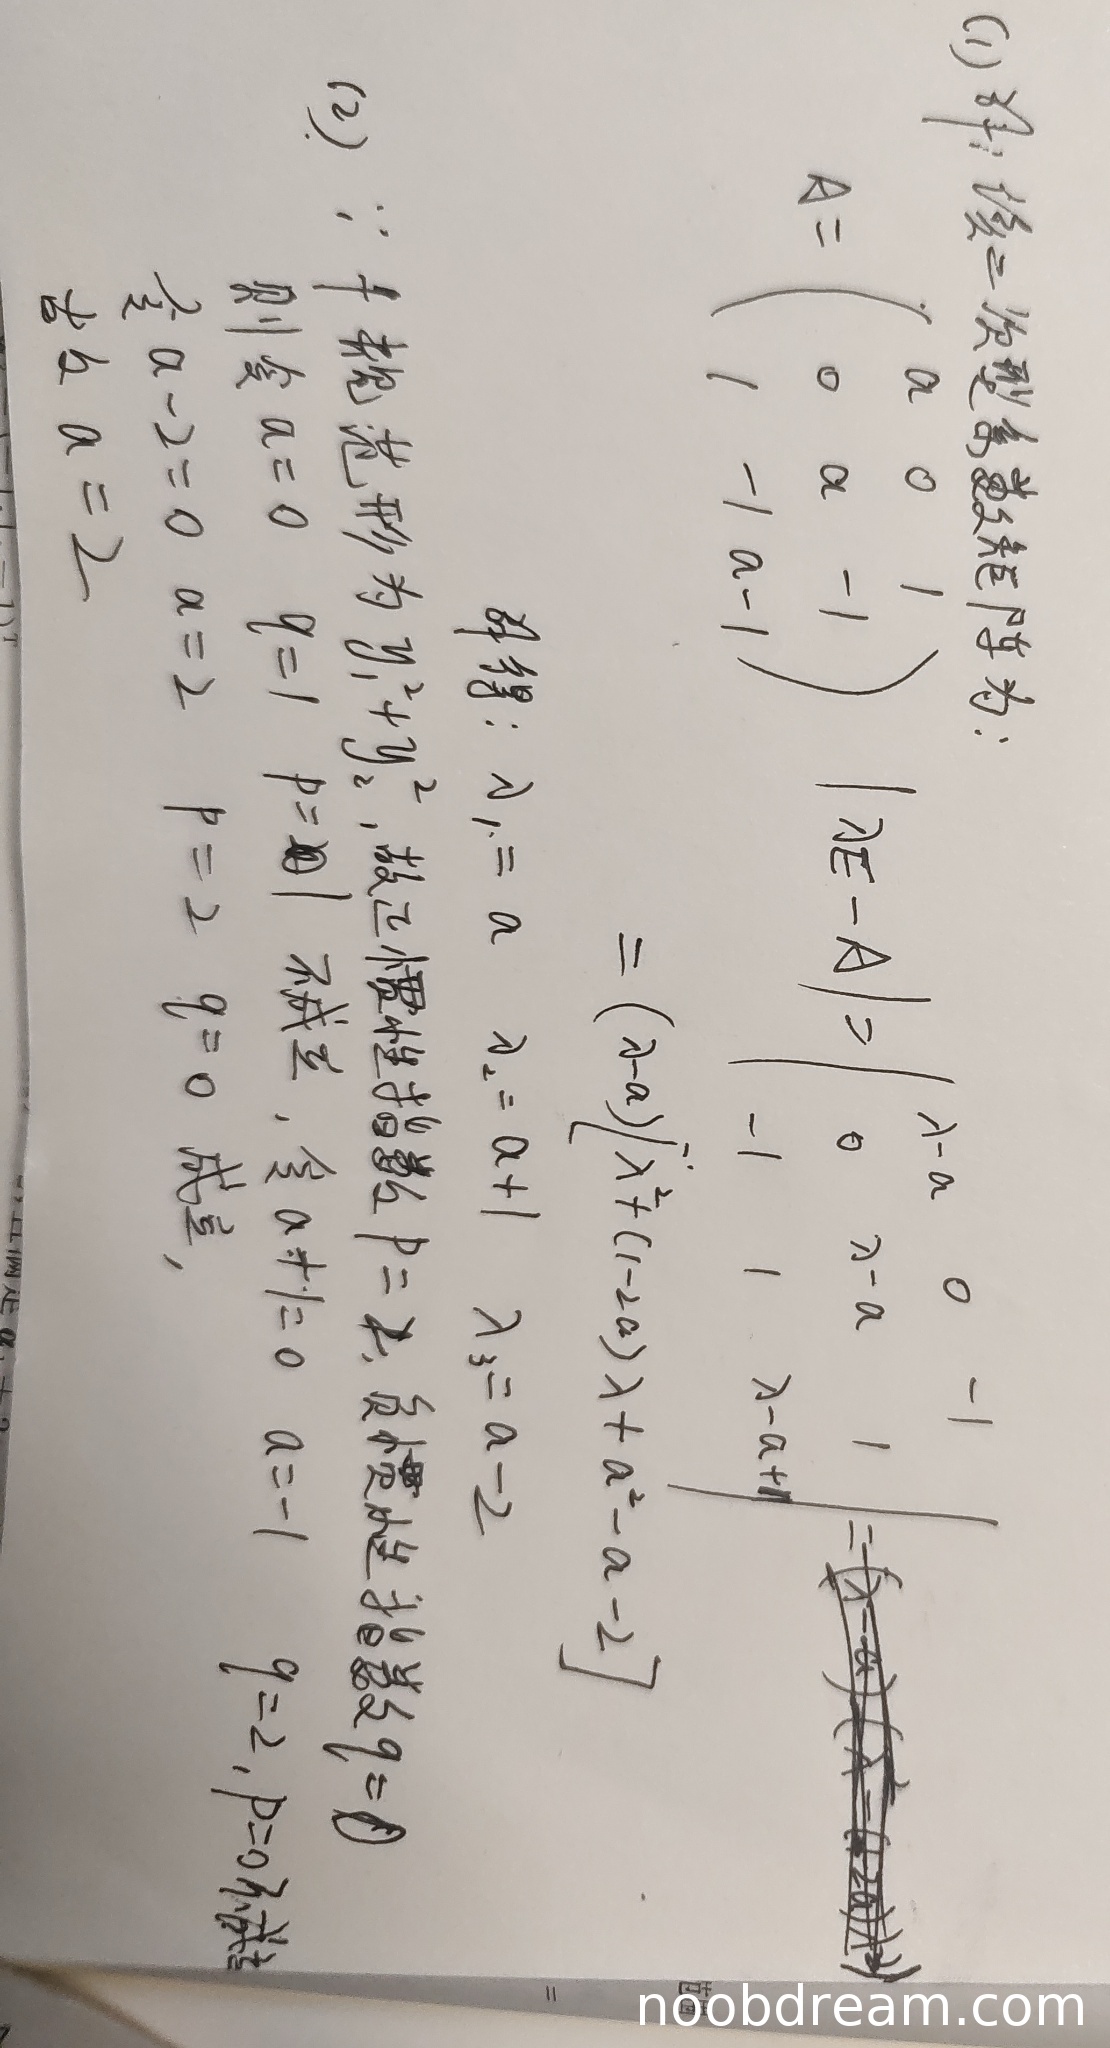 (1) 解：该二次型系数矩阵为：
A = ( a 0 1
0 a -1
1 -1 a-1 )
|λE-A| = | λ-a 0 -1
0 λ-a 1
-1 1 λ-a+1 | =
= (λ-a)[λ²+(1-2a)λ+a²-a-2]
解得：λ₁=a λ₂=a+1 λ₃=a-2
(2) ∵ f 规范形为 y₁²+y₂², 故正惯性指数 p=2, 负惯性指数 q=0
则令 a=0 q=1 p=1 不成立, 令 a+1=0 a=-1 q=2, p=0 不成立
令 a-2=0 a=2 p=2 q=0 成立,
古文 a=2
noobdream.com